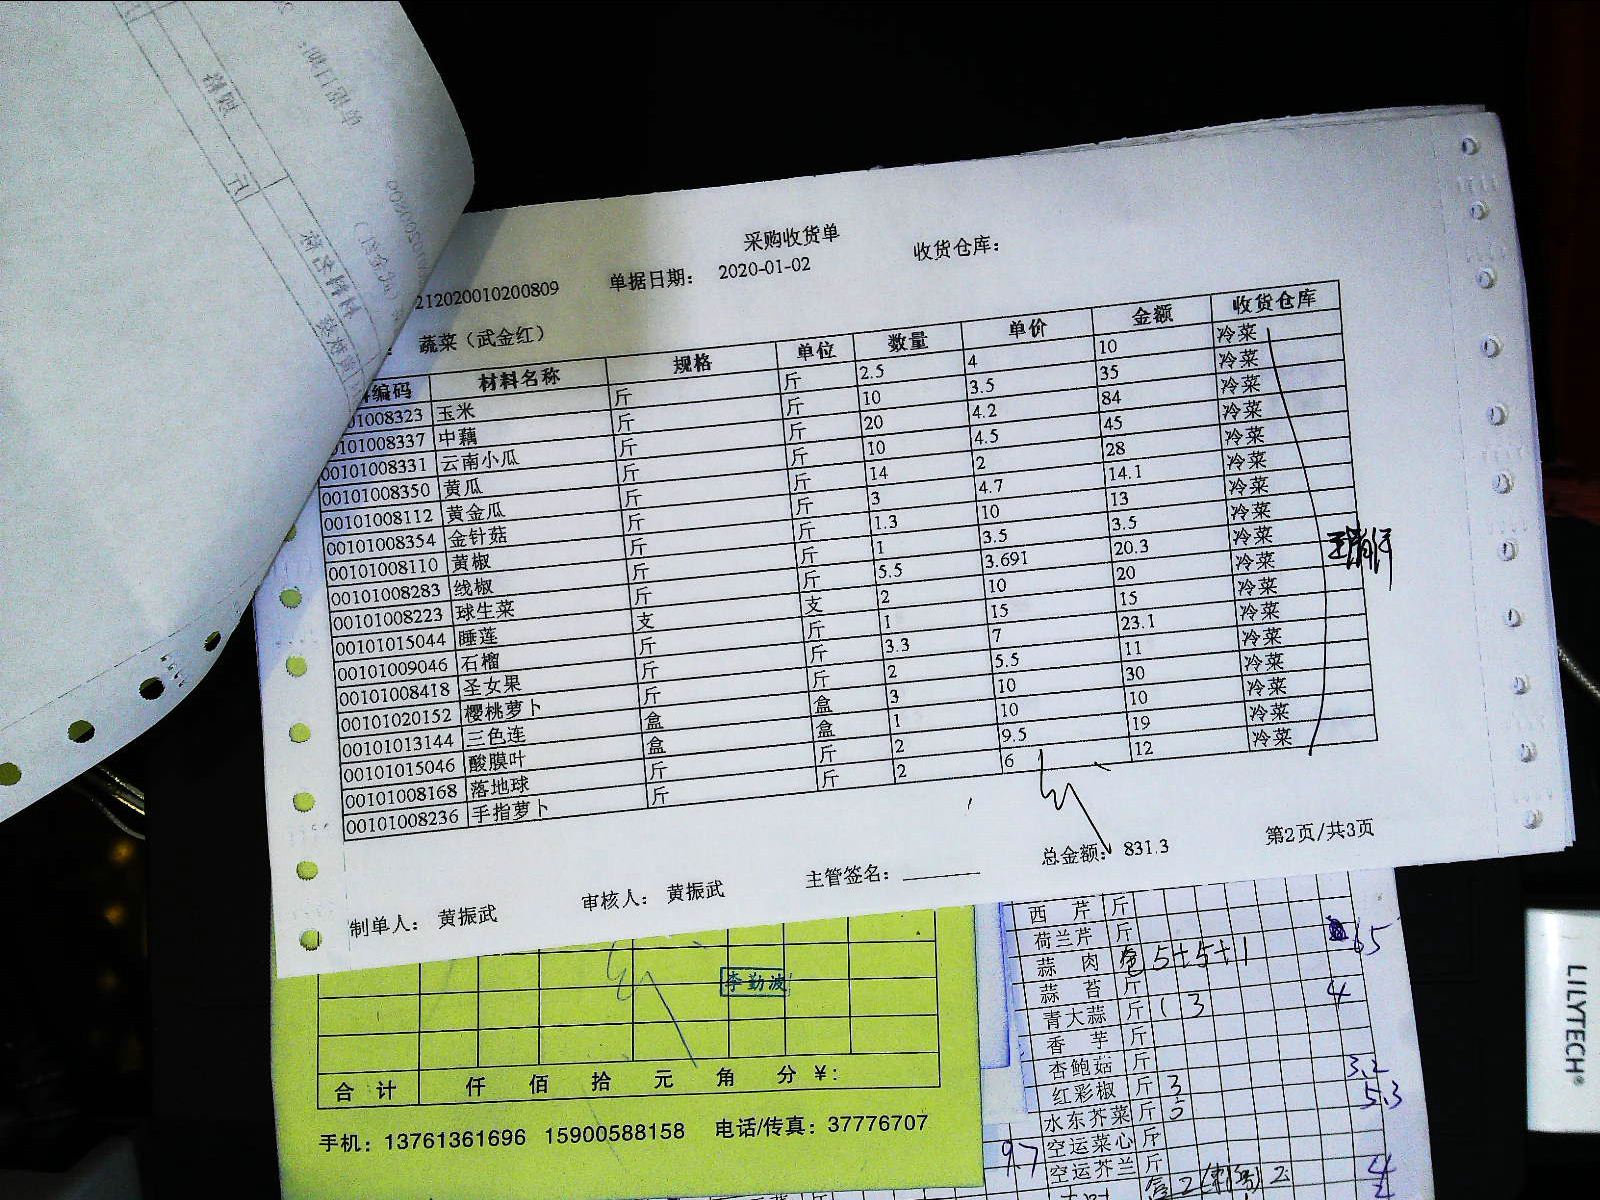 采购收货单
212020010200809 单据日期: 2020-01-02 收货仓库:
蔬菜（武金红）
编码 材料名称 规格 单位 数量 单价 金额 收货仓库
01008323 玉米 斤 斤 2.5 4 10 冷菜
101008337 中藕 斤 斤 10 3.5 35 冷菜
00101008331 云南小瓜 斤 斤 20 4.2 84 冷菜
00101008350 黄瓜 斤 斤 10 4.5 45 冷菜
00101008112 黄金瓜 斤 斤 14 2 28 冷菜
00101008354 金针菇 斤 斤 3 4.7 14.1 冷菜
00101008110 黄椒 斤 斤 1.3 10 13 冷菜
00101008283 线椒 斤 斤 1 3.5 3.5 冷菜
00101008223 球生菜 斤 斤 5.5 3.691 20.3 冷菜
00101015044 睡莲 支 支 2 10 20 冷菜
00101009046 石榴 斤 斤 1 15 15 冷菜
00101008418 圣女果 斤 斤 3.3 7 23.1 冷菜
00101020152 樱桃萝卜 斤 斤 2 5.5 11 冷菜
00101013144 三色连 盒 盒 3 10 30 冷菜
00101015046 酸膜叶 盒 盒 1 10 10 冷菜
00101008168 落地球 斤 斤 2 9.5 19 冷菜
00101008236 手指萝卜 斤 斤 2 6 12 冷菜
制单人: 黄振武 审核人: 黄振武 主管签名: 总金额: 831.3 第2页/共3页
李勤波
合 计 仟 佰 拾 元 角 分 ¥:
手机: 13761361696 15900588158 电话/传真: 37776707
西 芹 斤
荷兰芹 斤 65
蒜 肉 5+5+1
蒜 苔 斤 4
青大蒜 斤 13
香 芋 斤
杏鲍菇 斤 3.2
红彩椒 斤 3 5.3
水东芥菜 斤
空运菜心 斤
空运芥兰 斤 4
9.7
LILYTECH®